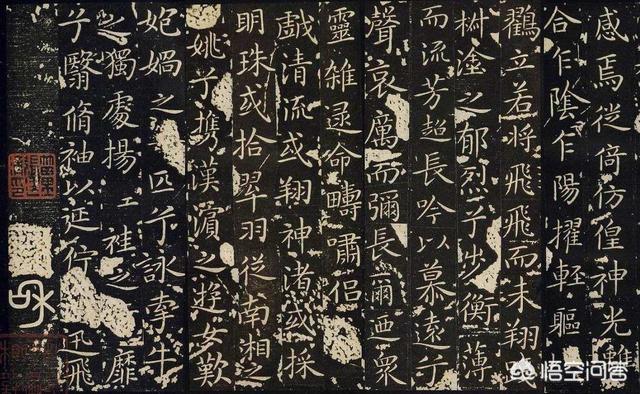 感焉徙倚仿徨神光離
合乍陰乍陽擢輕軀
立若將飛飛而未翔
塗之郁烈兮步衡薄
而流芳超長吟以慕遠兮
聲哀厲而彌長爾迺衆
靈雜遝命疇嘯侶
戲清流或翔神渚或採
明珠或拾翠羽從南湘之
姚兮携漢濱之遊女歎
媧之匹兮詠牽牛
之獨處揚袿之靡
兮翳脩袖以延佇迅飛
悟空问答